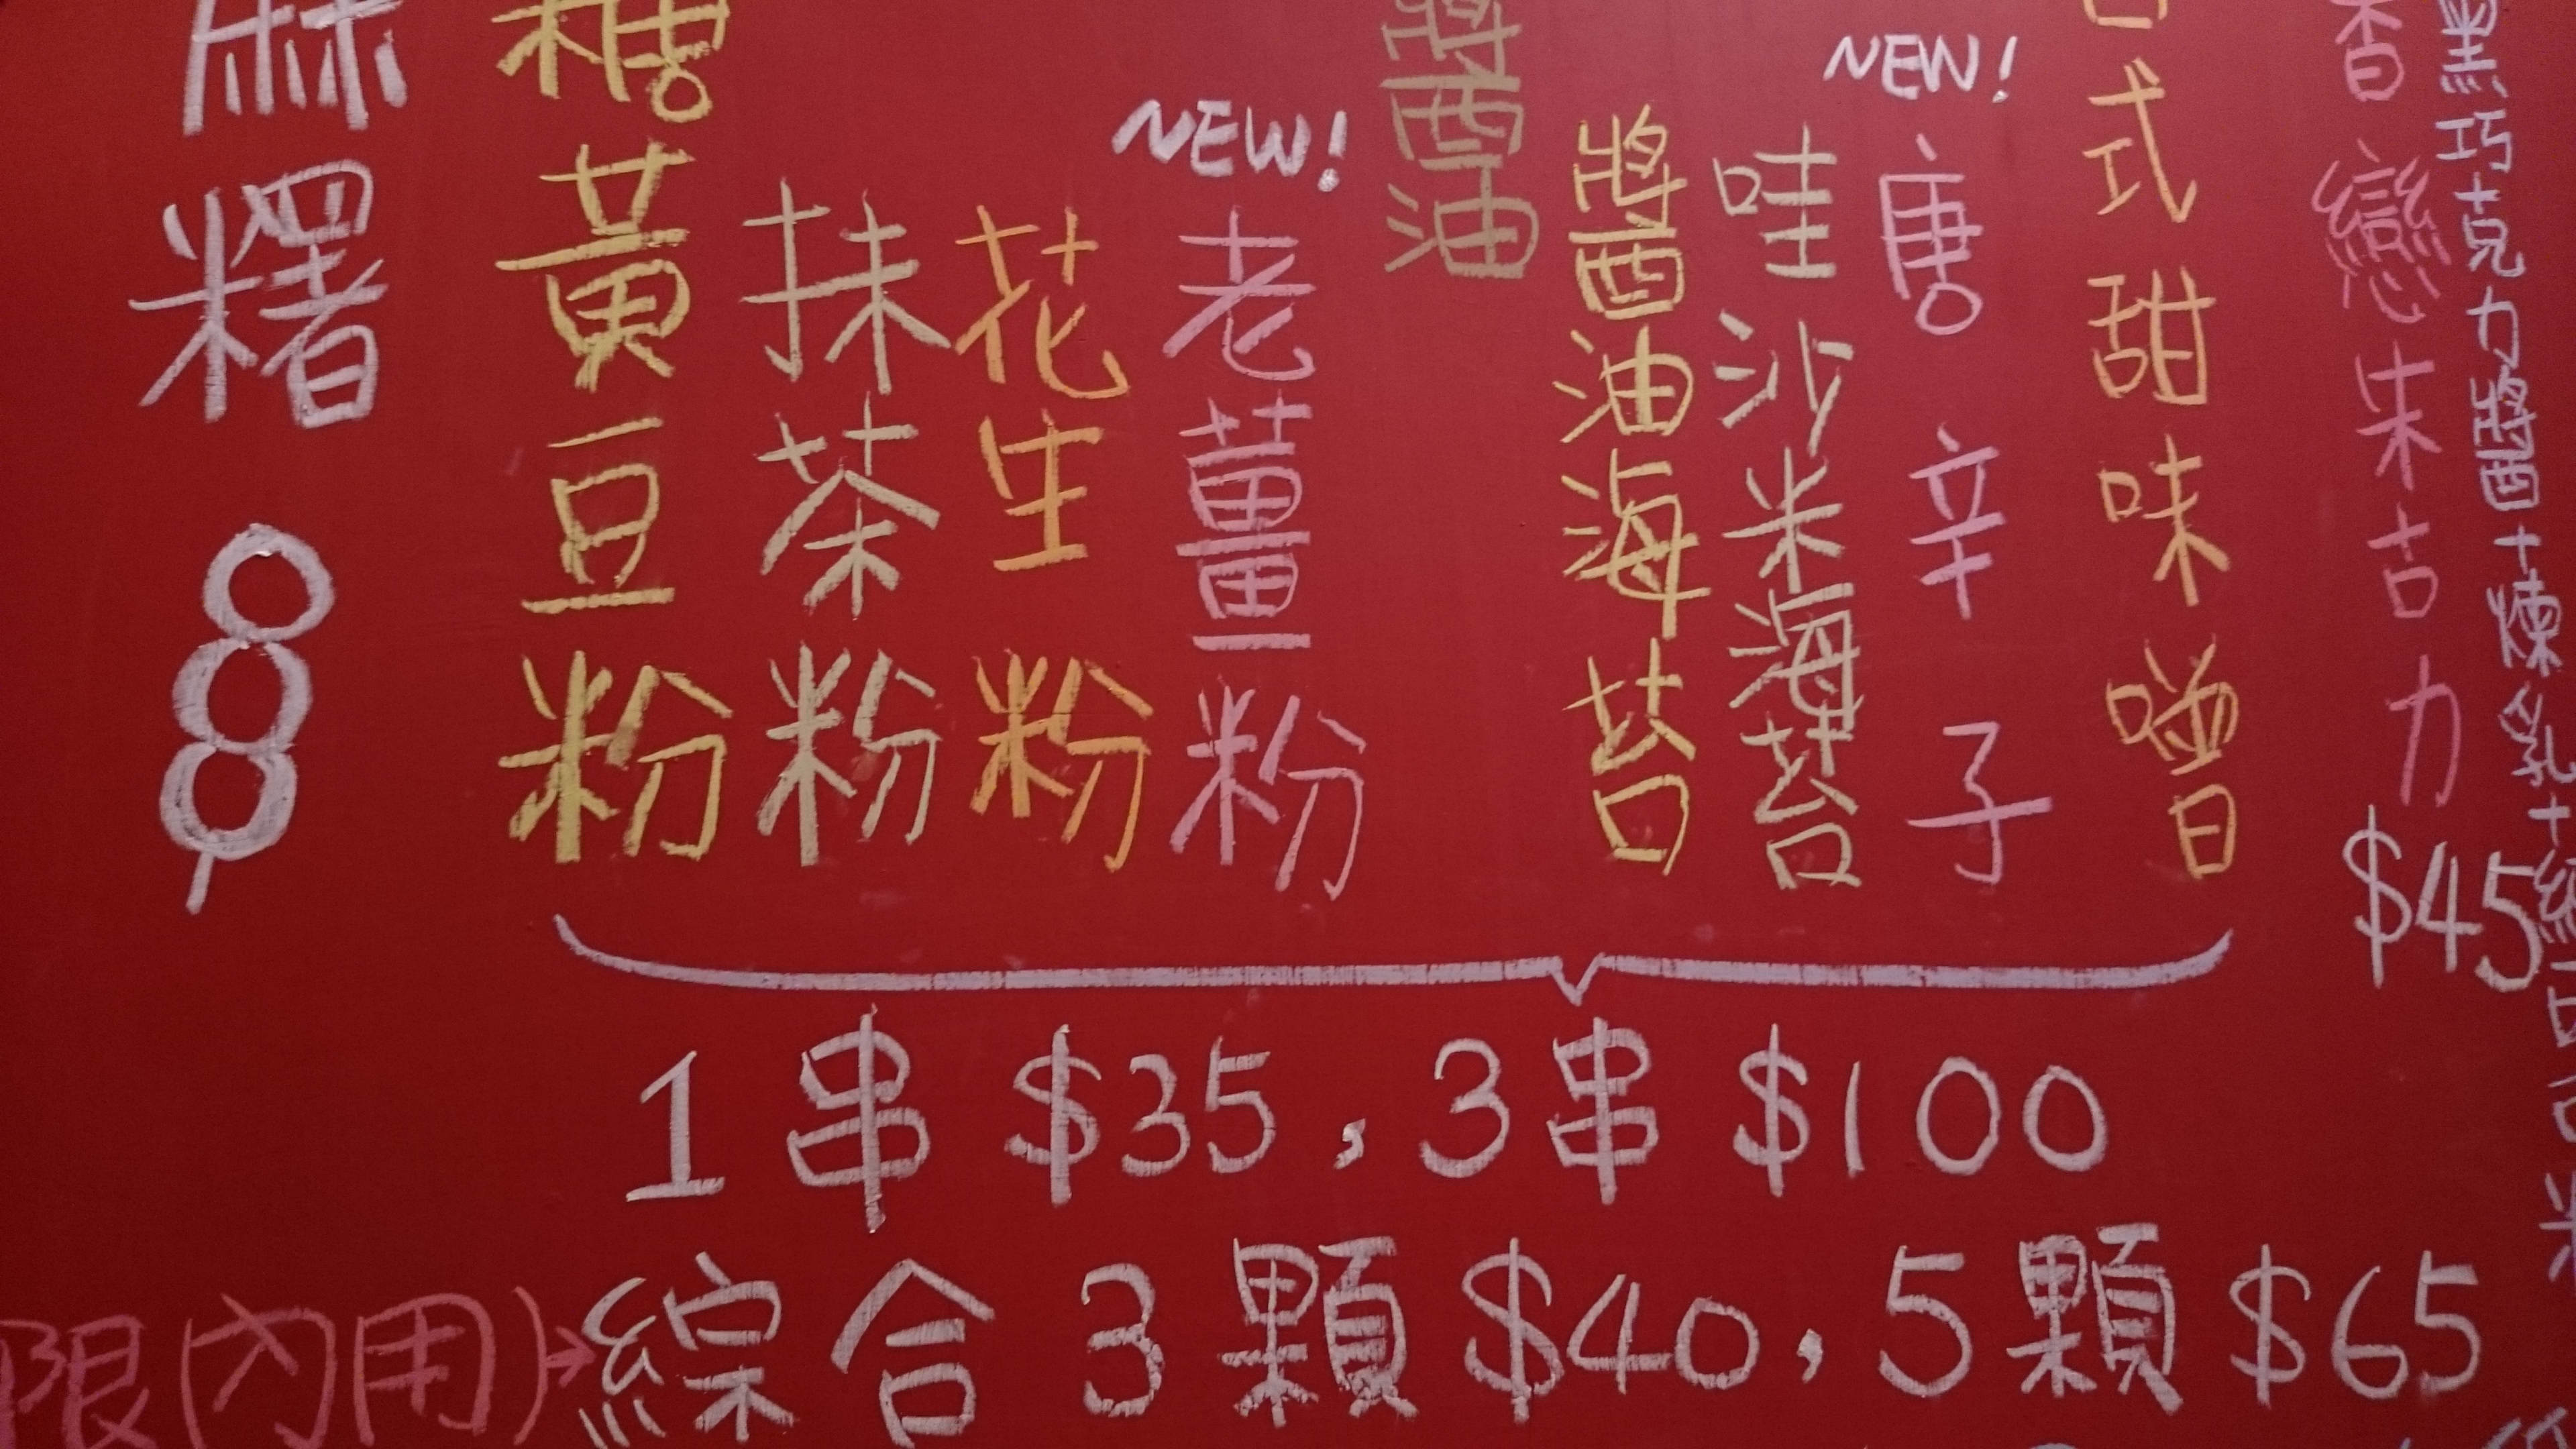 麻糬
糖黃豆粉
抹茶粉
花生粉
NEW!
老薑粉
醬油
醬油海苔
哇沙米海苔
NEW!
唐辛子
式甜味噌
香戀朱古力
$45
黑巧克力醬+煉乳+綜
1串 $35,3串 $100
限(內用)→綜合 3顆 $40,5顆 $65